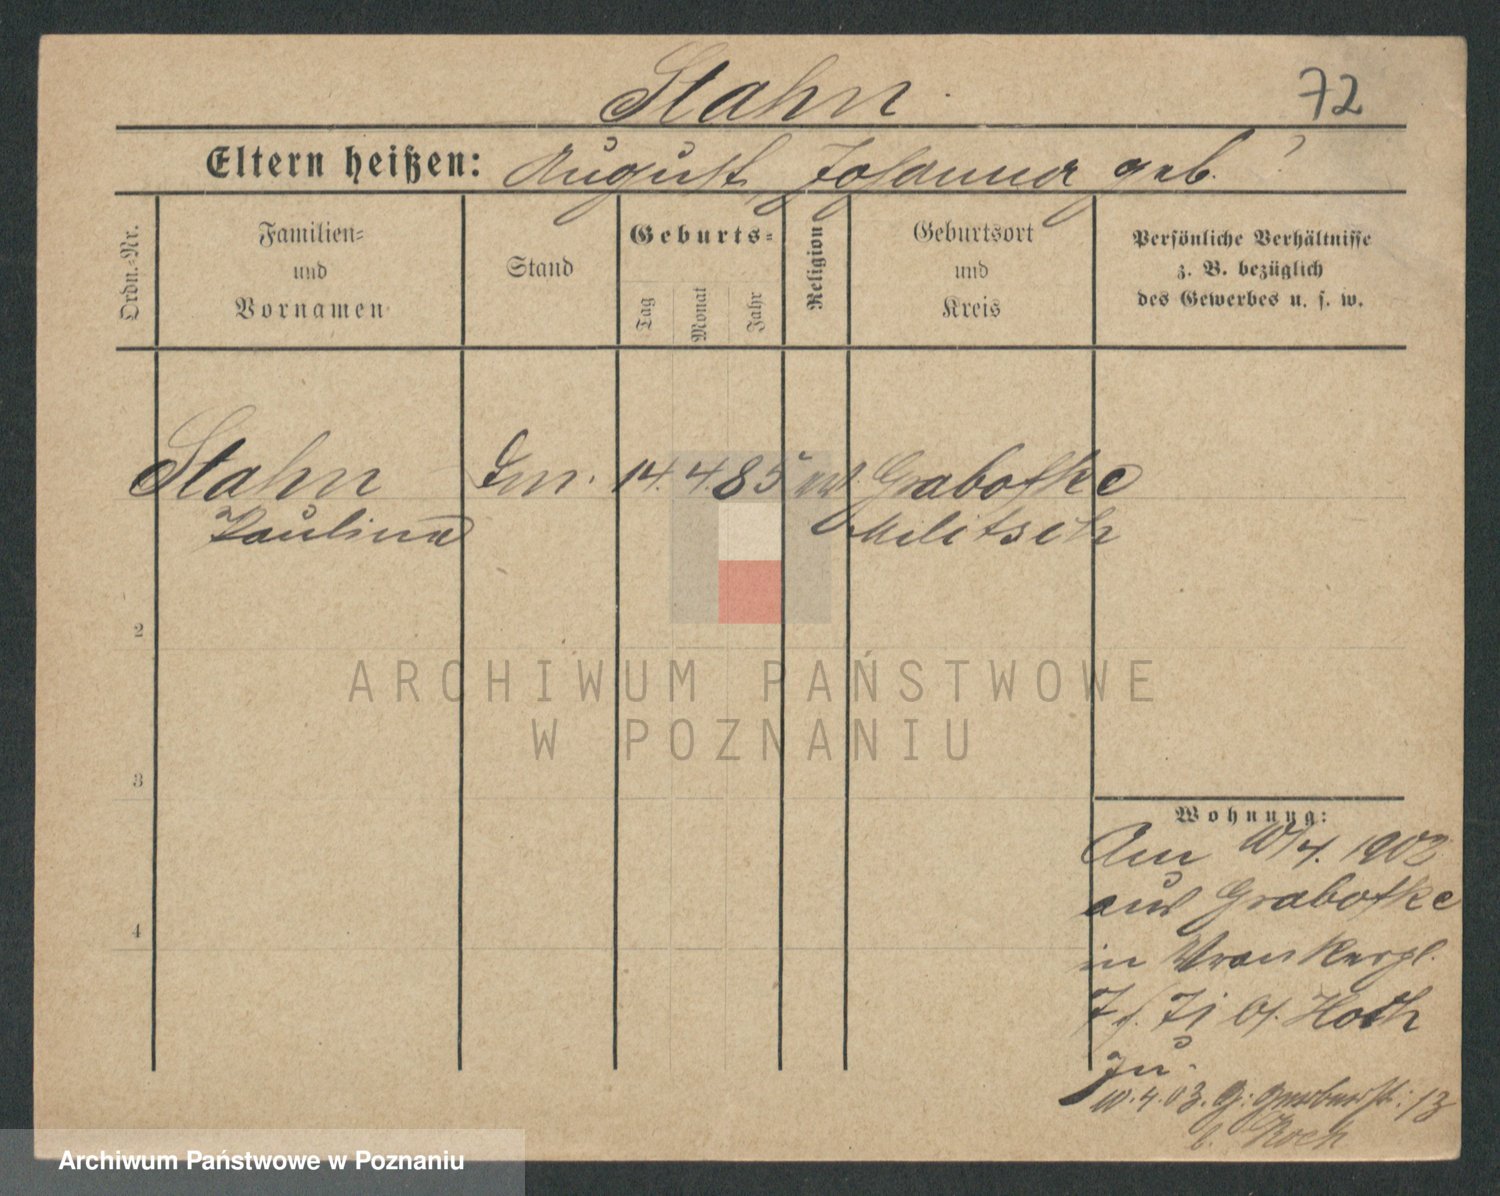 Stahn
72
Eltern heißen: August, Johanna geb. ?
Ordn.-Nr.
Familien-
und
Vornamen
Stand
Geburts-
Tag
Monat
Jahr
Religion
Geburtsort
und
Kreis
Persönliche Verhältnisse
z. B. bezüglich
des Gewerbes u. s. w.
Stahn 14. 4 85 ev. Grabofke
Paulina Militsch
2
3
4
ARCHIWUM PAŃSTWOWE
W POZNANIU
Wohnung:
Am 10/4. 1902
aus Grabofke
in
Hoth
zu.
10.4.03. G: Gerberstr: 13
b. Koch
Archiwum Państwowe w Poznaniu